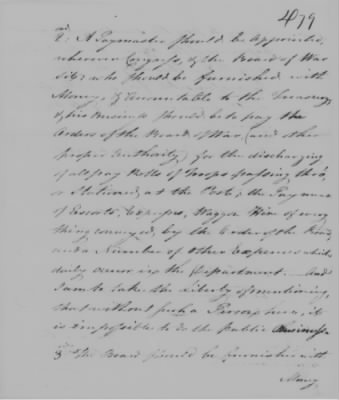 479
2d: A Paymaster should be appointed,
wherever Congress, & the Board of War
sits; who should be furnished with
Money, & accountable to the Treasury
& his Business should be to pay the
Orders of the Board of War, (and other
proper Authority) for the discharging
of all pay Rolls of Troops passing thro',
or Stationed at the Posts; the Payment
of Escorts, Expresses, Waggon Hire of every
thing conveyed, by the Order of the Board,
and a Number of other Expences which
daily occur in the Department. And
I am to take the Liberty of mentioning,
that without such a Person here, it
is impossible to do the Public Business.
3d The Board should be furnished with
Money